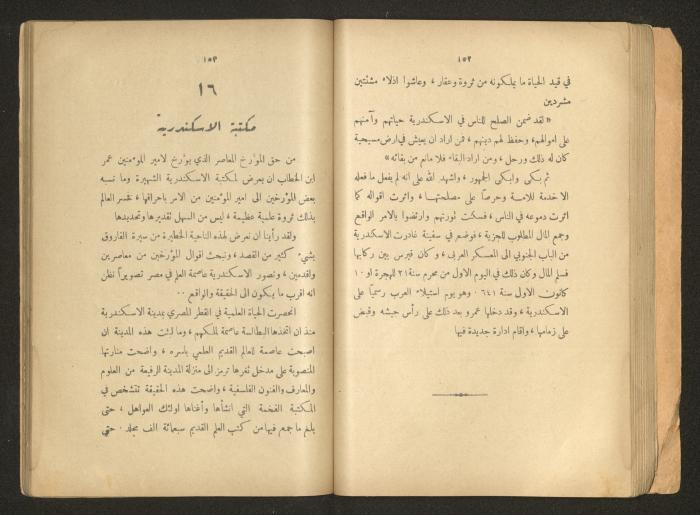 ١٥٢
في قيد الحياة ما يملكونه من ثروة وعقار ، وعاشوا اذلاء مشتتين
مشردين
« لقد ضمن الصلح للناس في الاسكندرية حياتهم وآمنهم
على اموالهم ، وحفظ لهم دينهم ، فمن اراد ان يعيش في ارض مسيحية
كان له ذلك ورحل ، ومن اراد البقاء فلا مانع من بقائه »
ثم بكى وابكى الجمهور ، واشهد الله على انه لم يفعل ما فعله
الا خدمة للامة وحرصاً على مصلحتها ، واثرت اقواله كما
اثرت دموعه في الناس ، فسكت ثورتهم وارتضوا بالامر الواقع
وجمع المال المطلوب للجزية ، فوضع في سفينة غادرت الاسكندرية
من الباب الجنوبي الى المعسكر العربي ، وكان قيرس بين ركابها
فسلم المال وكان ذلك في اليوم الاول من محرم سنة ٢١ للهجرة او ١٠
كانون الاول سنة ٦٤١ وهو يوم استيلاء العرب رسمياً على
الاسكندرية ، وقد دخلها عمرو بعد ذلك على رأس جيشه وقبض
على زمامها ، واقام ادارة جديدة فيها
١٥٣
١٦
مكتبة الاسكندرية
من حق المؤرخ المعاصر الذي يؤرخ لامير المؤمنين عمر
ابن الخطاب ان يعرض لمكتبة الاسكندرية الشهيرة وما نسبه
بعض المؤرخين الى امير المؤمنين من الامر باحراقها ، فخسر العالم
بذلك ثروة علمية عظيمة ، ليس من السهل تقديرها وتحديدها
ولقد رأينا ان نعرض لهذه الناحية الخطيرة من سيرة الفاروق
بشيء كثير من القصد ، ونبحث اقوال المؤرخين من معاصرين
واقدمين ، ونصور الاسكندرية عاصمة العلم في مصر تصويراً نظن
انه اقرب ما يكون الى الحقيقة والواقع ..
انحصرت الحياة العلمية في القطر المصري بمدينة الاسكندرية
منذ ان اتخذها البطالسة عاصمة لملكهم ، وما لبثت هذه المدينة ان
اصبحت عاصمة للعالم القديم العلمي باسره ، واضحت منارتها
المنصوبة على مدخل ثغرها ترمز الى منزلة المدينة الرفيعة من العلوم
والمعارف والفنون الفلسفية ، واضحت هذه الحقيقة تتشخص في
المكتبة الفخمة التي انشأها وأغناها اولئك العواهل ، حتى
بلغ ما جمع فيها من كتب العلم القديم سبعمائة الف مجلد . حتى